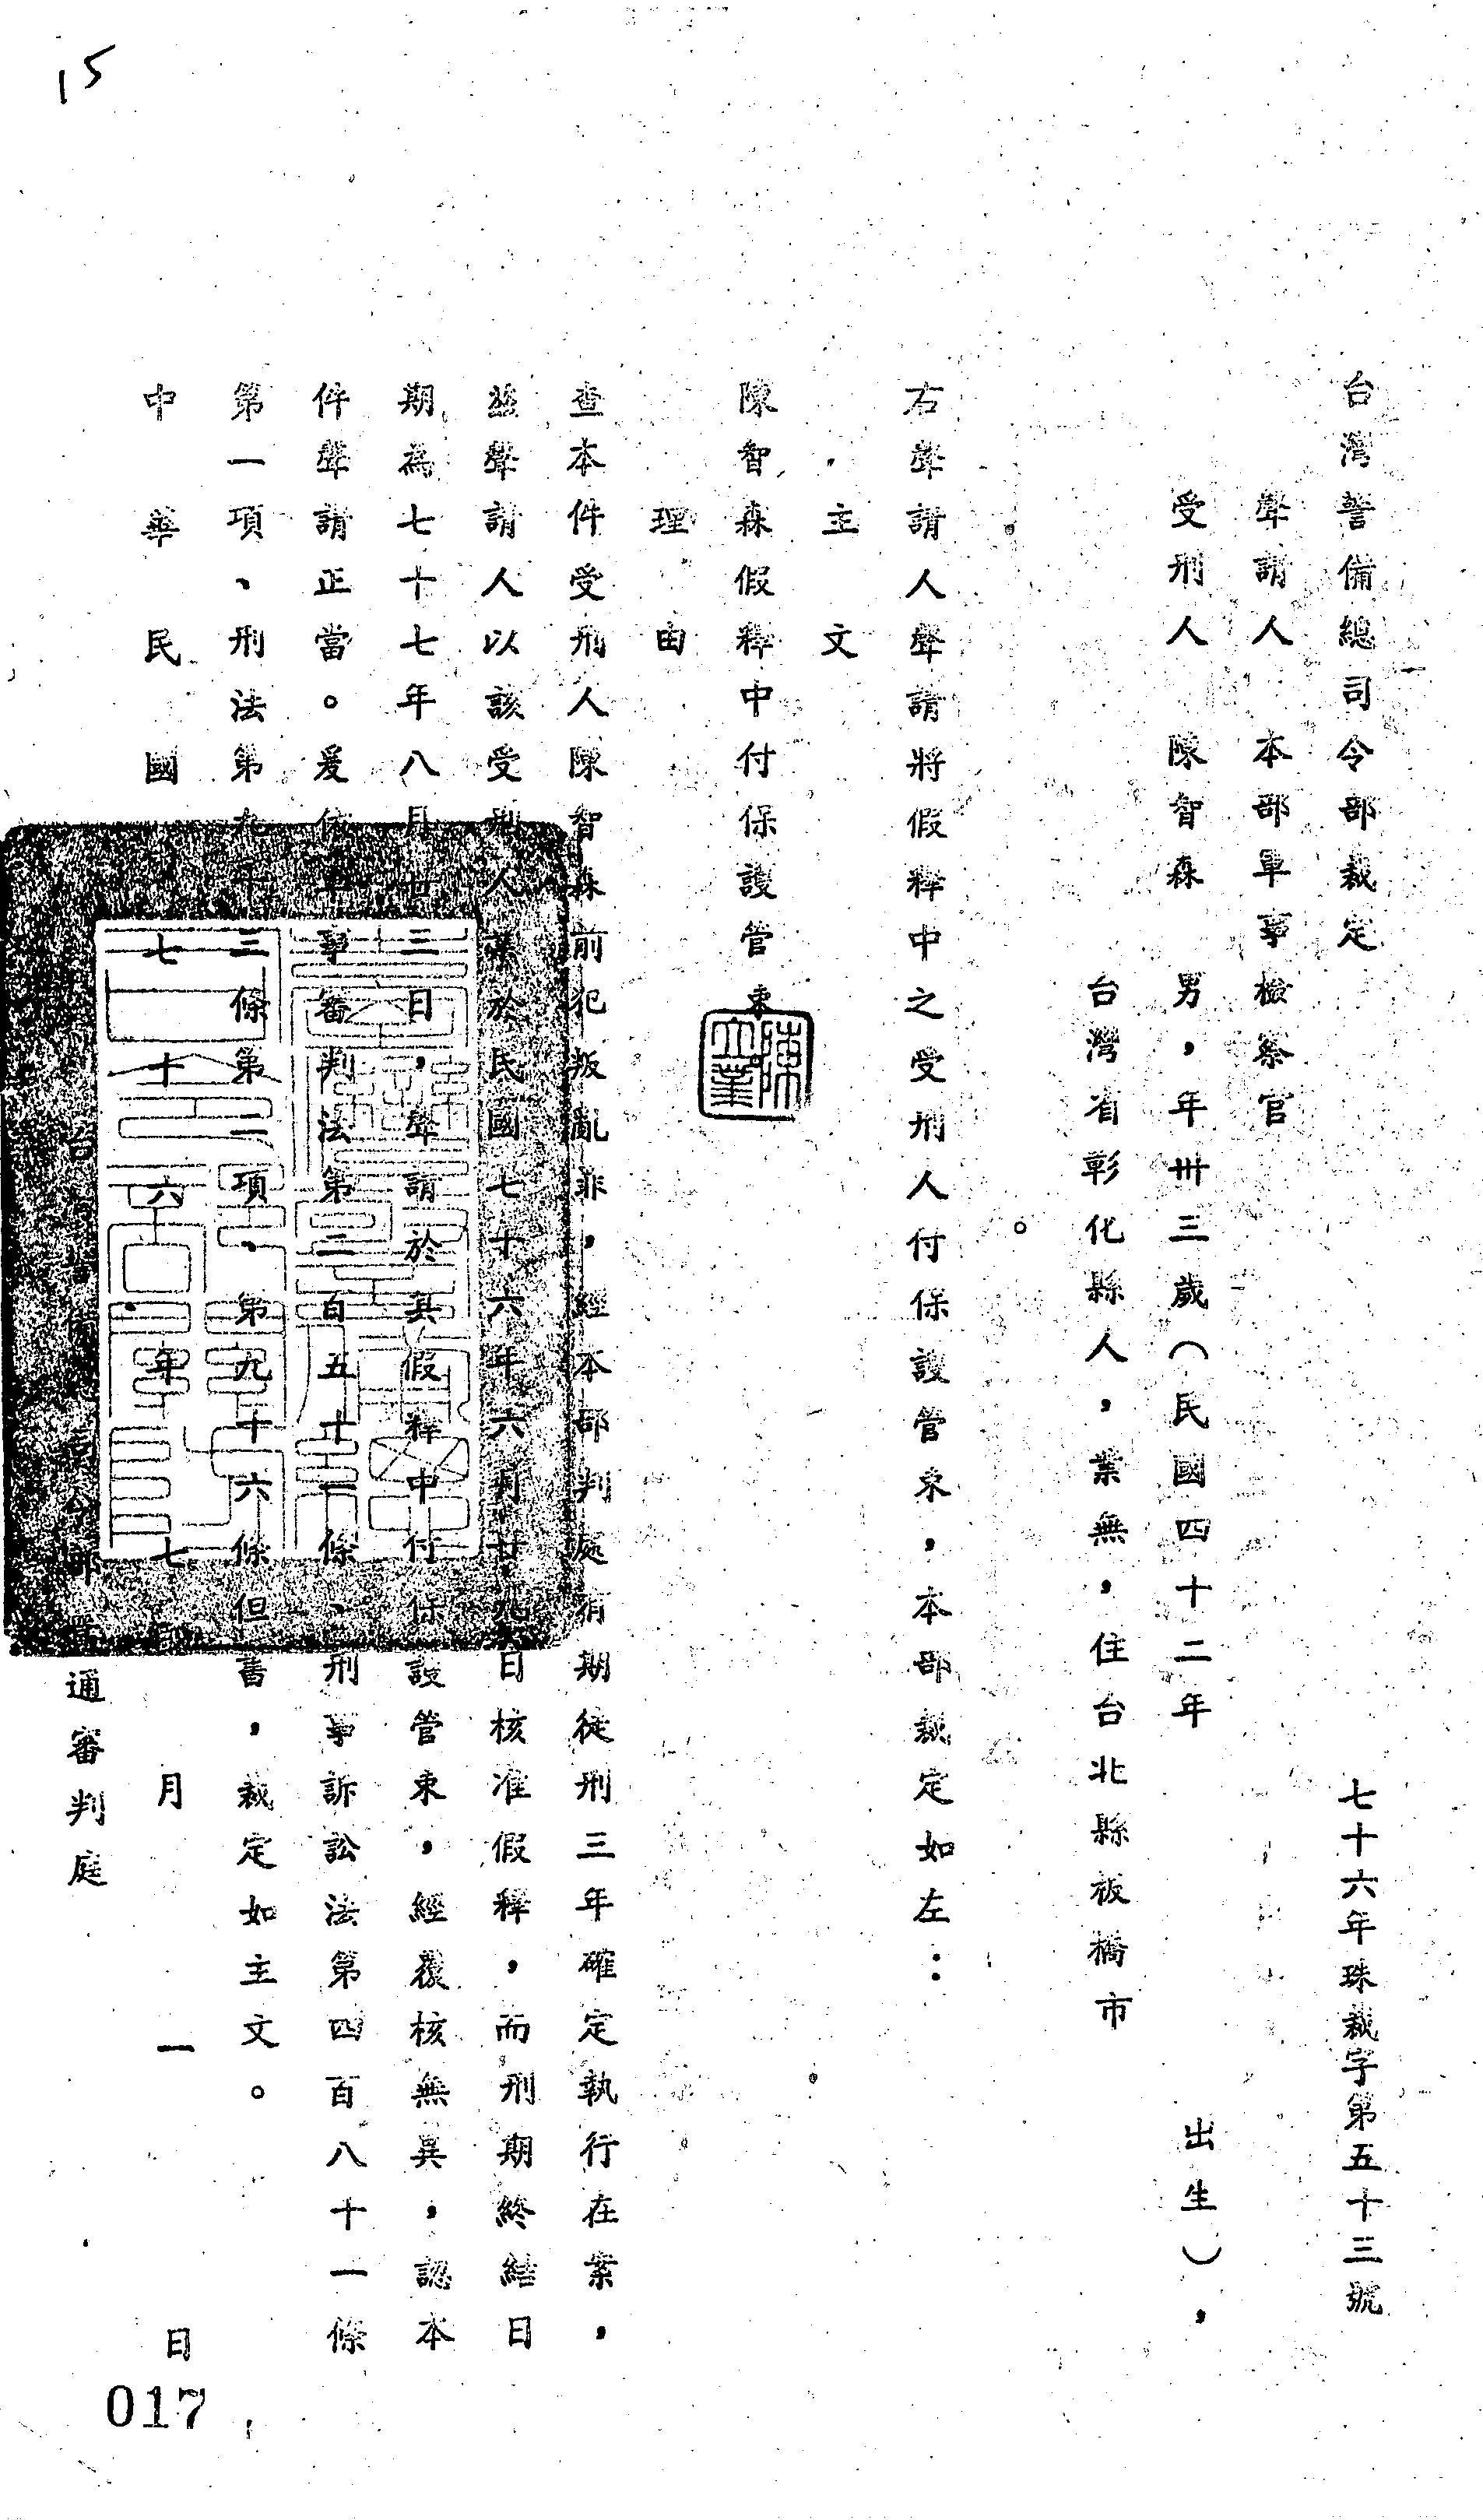 15
台灣警備總司令部裁定 七十六年珠裁字第五十三號
聲請人 本部軍事檢察官
受刑人 陳智森 男，年卅三歲（民國四十二年 出生），
台灣省彰化縣人，業無，住台北縣板橋市
。
右聲請人聲請將假釋中之受刑人付保護管束，本部裁定如左：
主文
陳智森假釋中付保護管束
陳立業
理由
查本件受刑人陳智森前犯叛亂罪，經本部判處有期徒刑三年確定執行在案，
茲聲請人以該受刑人業於民國七十六年六月廿九日核准假釋，而刑期終結日
期為七十七年八月廿三日，聲請於其假釋中付保護管束，經覆核無異，認本
件聲請正當。爰依軍事審判法第二百五十一條、刑事訴訟法第四百八十一條
第一項、刑法第九十三條第二項、第九十六條但書，裁定如主文。
中華民國七十六年七月一日
台灣警備總司令部普通審判庭
017